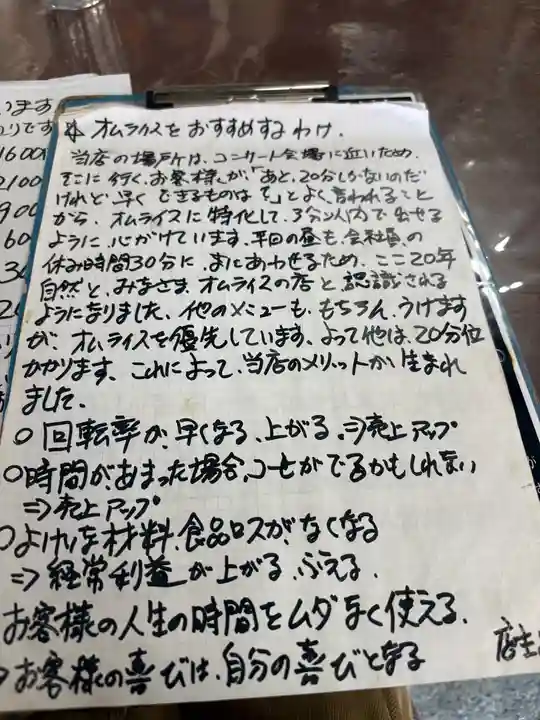 います
りです
1600
2100
900
60
* オムライスをおすすめするわけ.
当店の場所は、コンサート会場に近いため、
そこに行く、お客様が「あと、20分しかないのだ
けれど早くできるものは?」とよく言われること
から、オムライスに特化して、3分以内で出せる
ように、心がけています、平日の昼も、会社員の
休み時間30分に、まにあわせるため、ここ20年
自然と、みなさま、オムライスの店と認識される
ようになりました、他のメニューも、もちろん、うけます
が、オムライスを優先しています、よって他は、20分位
かかります、これによって、当店のメリットが生まれ
ました.
○ 回転率が、早くなる、上がる、⇒売上アップ
○時間があまった場合、コーヒーがでるかもしれない
⇒売上アップ
○よけいな材料、食品ロスが、なくなる
⇒経常利益が上がる、ふえる.
お客様の人生の時間をムダなく使える.
お客様の喜びは、自分の喜びとなる
店主